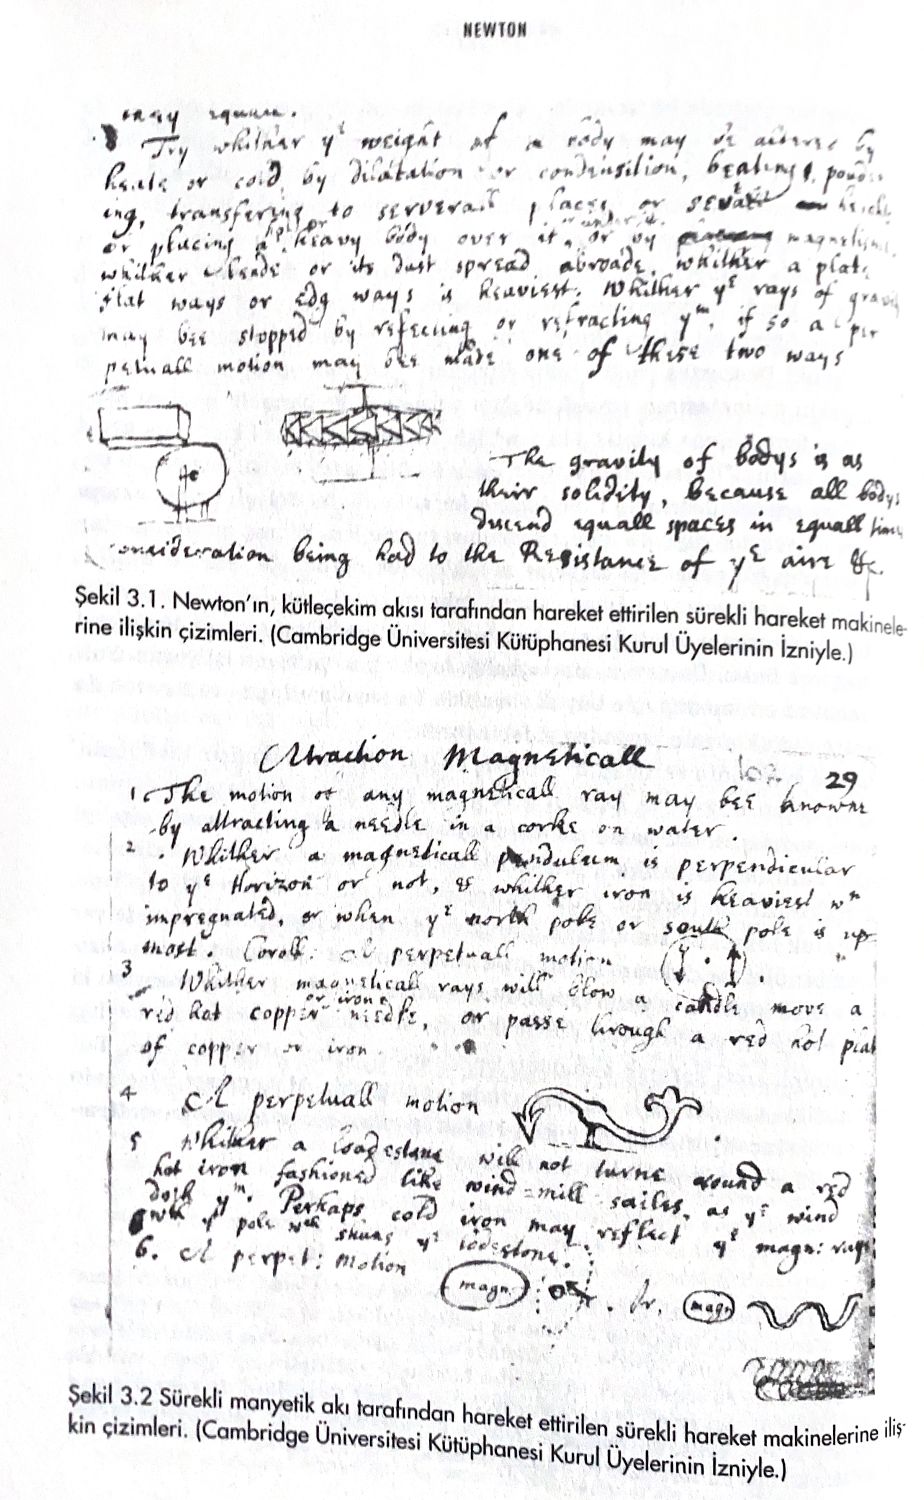 NEWTON
may square.
Try whither yᵉ weight of a body may be altered by
heate or cold, by dilatation or condensition, beating, poudr
ing, transfering to serverall places or severall heights
or placing a heavy body over it or under it or by magnetisme
whither leade or its dust spread abroade, whither a plate
flat ways or edg ways is heaviest. Whither yᵉ rays of gravity
may bee stopped by reflecting or refracting yᵐ, if so a per
petuall motion may bee made one of these two ways
The gravity of bodys is as
their solidity, because all bodys
descend equall spaces in equall times
consideration being had to the Resistance of yᵉ aire &c.
Şekil 3.1. Newton'ın, kütleçekim akısı tarafından hareket ettirilen sürekli hareket makinele-
rine ilişkin çizimleri. (Cambridge Üniversitesi Kütüphanesi Kurul Üyelerinin İzniyle.)
Attraction Magneticall
102 29
1 The motion of any magneticall ray may bee knowne
by attracting a needle in a corke on water.
2. Whither a magneticall pendulum is perpendicular
to yᵉ Horizon or not, & whither iron is heaviest wⁿ
impregnated, or when yᵉ north pole or south pole is up
most. Coroll: A perpetuall motion
3 Whither magneticall rays will blow a candle move a
red hot copper or iron needle, or passe through a red hot plate
of copper or iron.
4 A perpetuall motion
5 Whither a loadestone will not turne around a red
hot iron fashioned like wind-mill sailes, as yᵉ wind
doth yᵐ. Perhaps cold iron may reflect yᵉ magn: rays
wᵗʰ yᵗ pole wᶜʰ shuns yᵉ lodestone.
6. A perpet: motion
magn. Or magn
Şekil 3.2 Sürekli manyetik akı tarafından hareket ettirilen sürekli hareket makinelerine iliş-
kin çizimleri. (Cambridge Üniversitesi Kütüphanesi Kurul Üyelerinin İzniyle.)